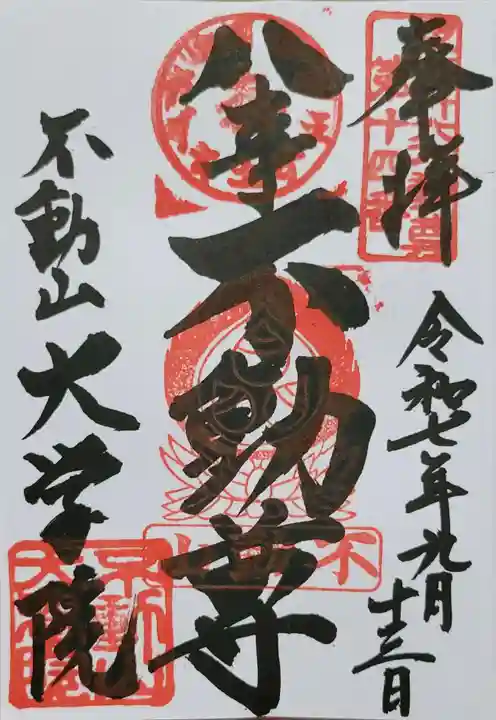 奉拝
令和七年九月
十三日
八事不動尊
不動山
大学院